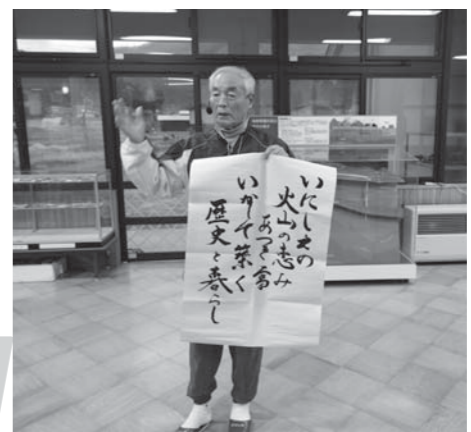 いにしえの
火山の恵み
あつき富
いかして築く
歴史と暮らし